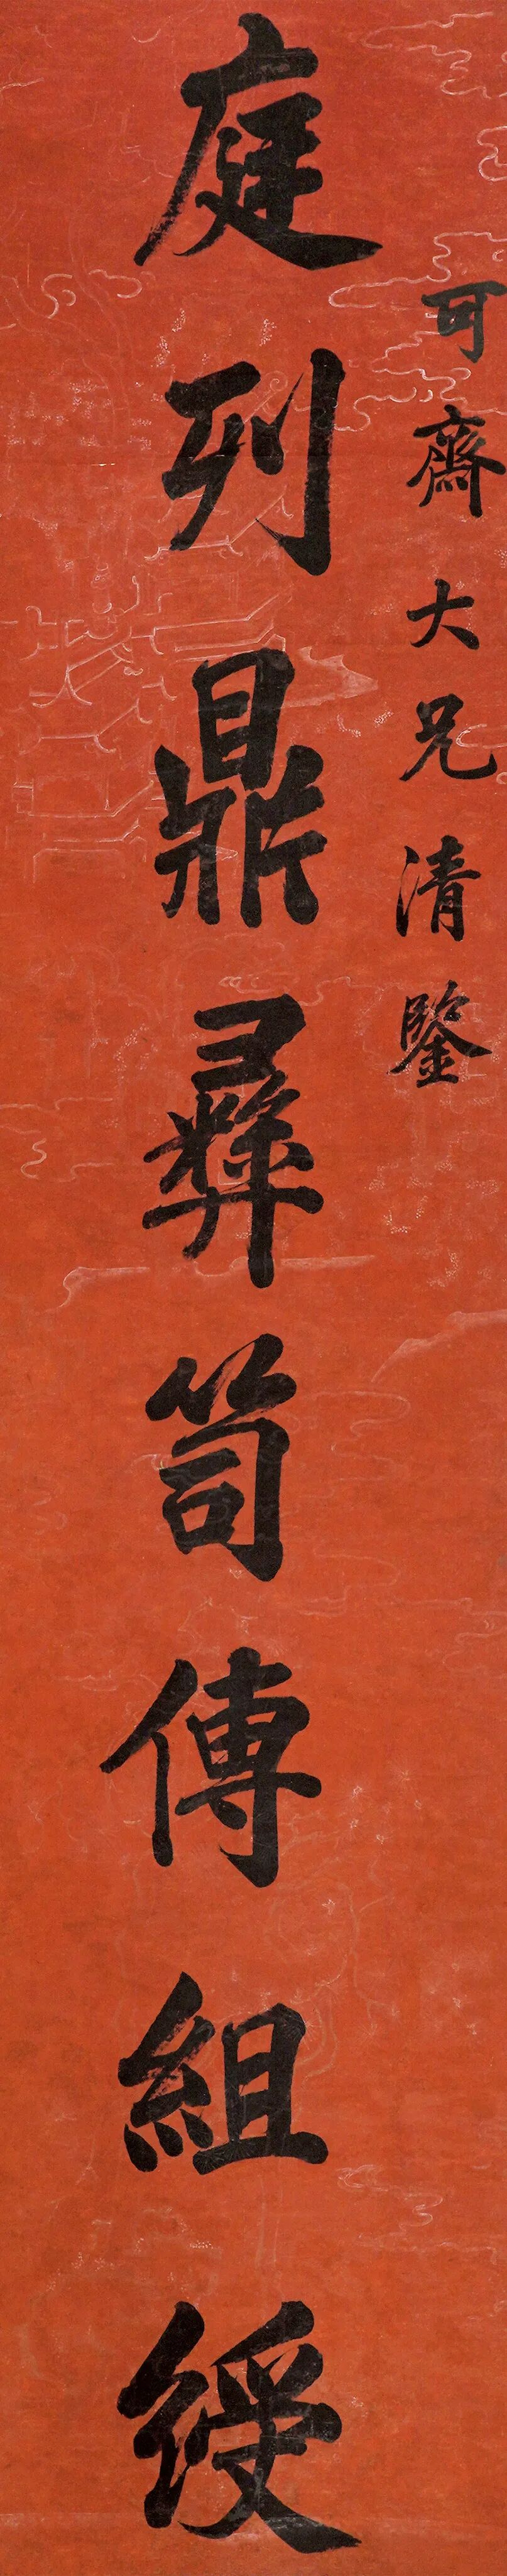 可齋大兄清鑒
庭列鼎彝笥傳組綬